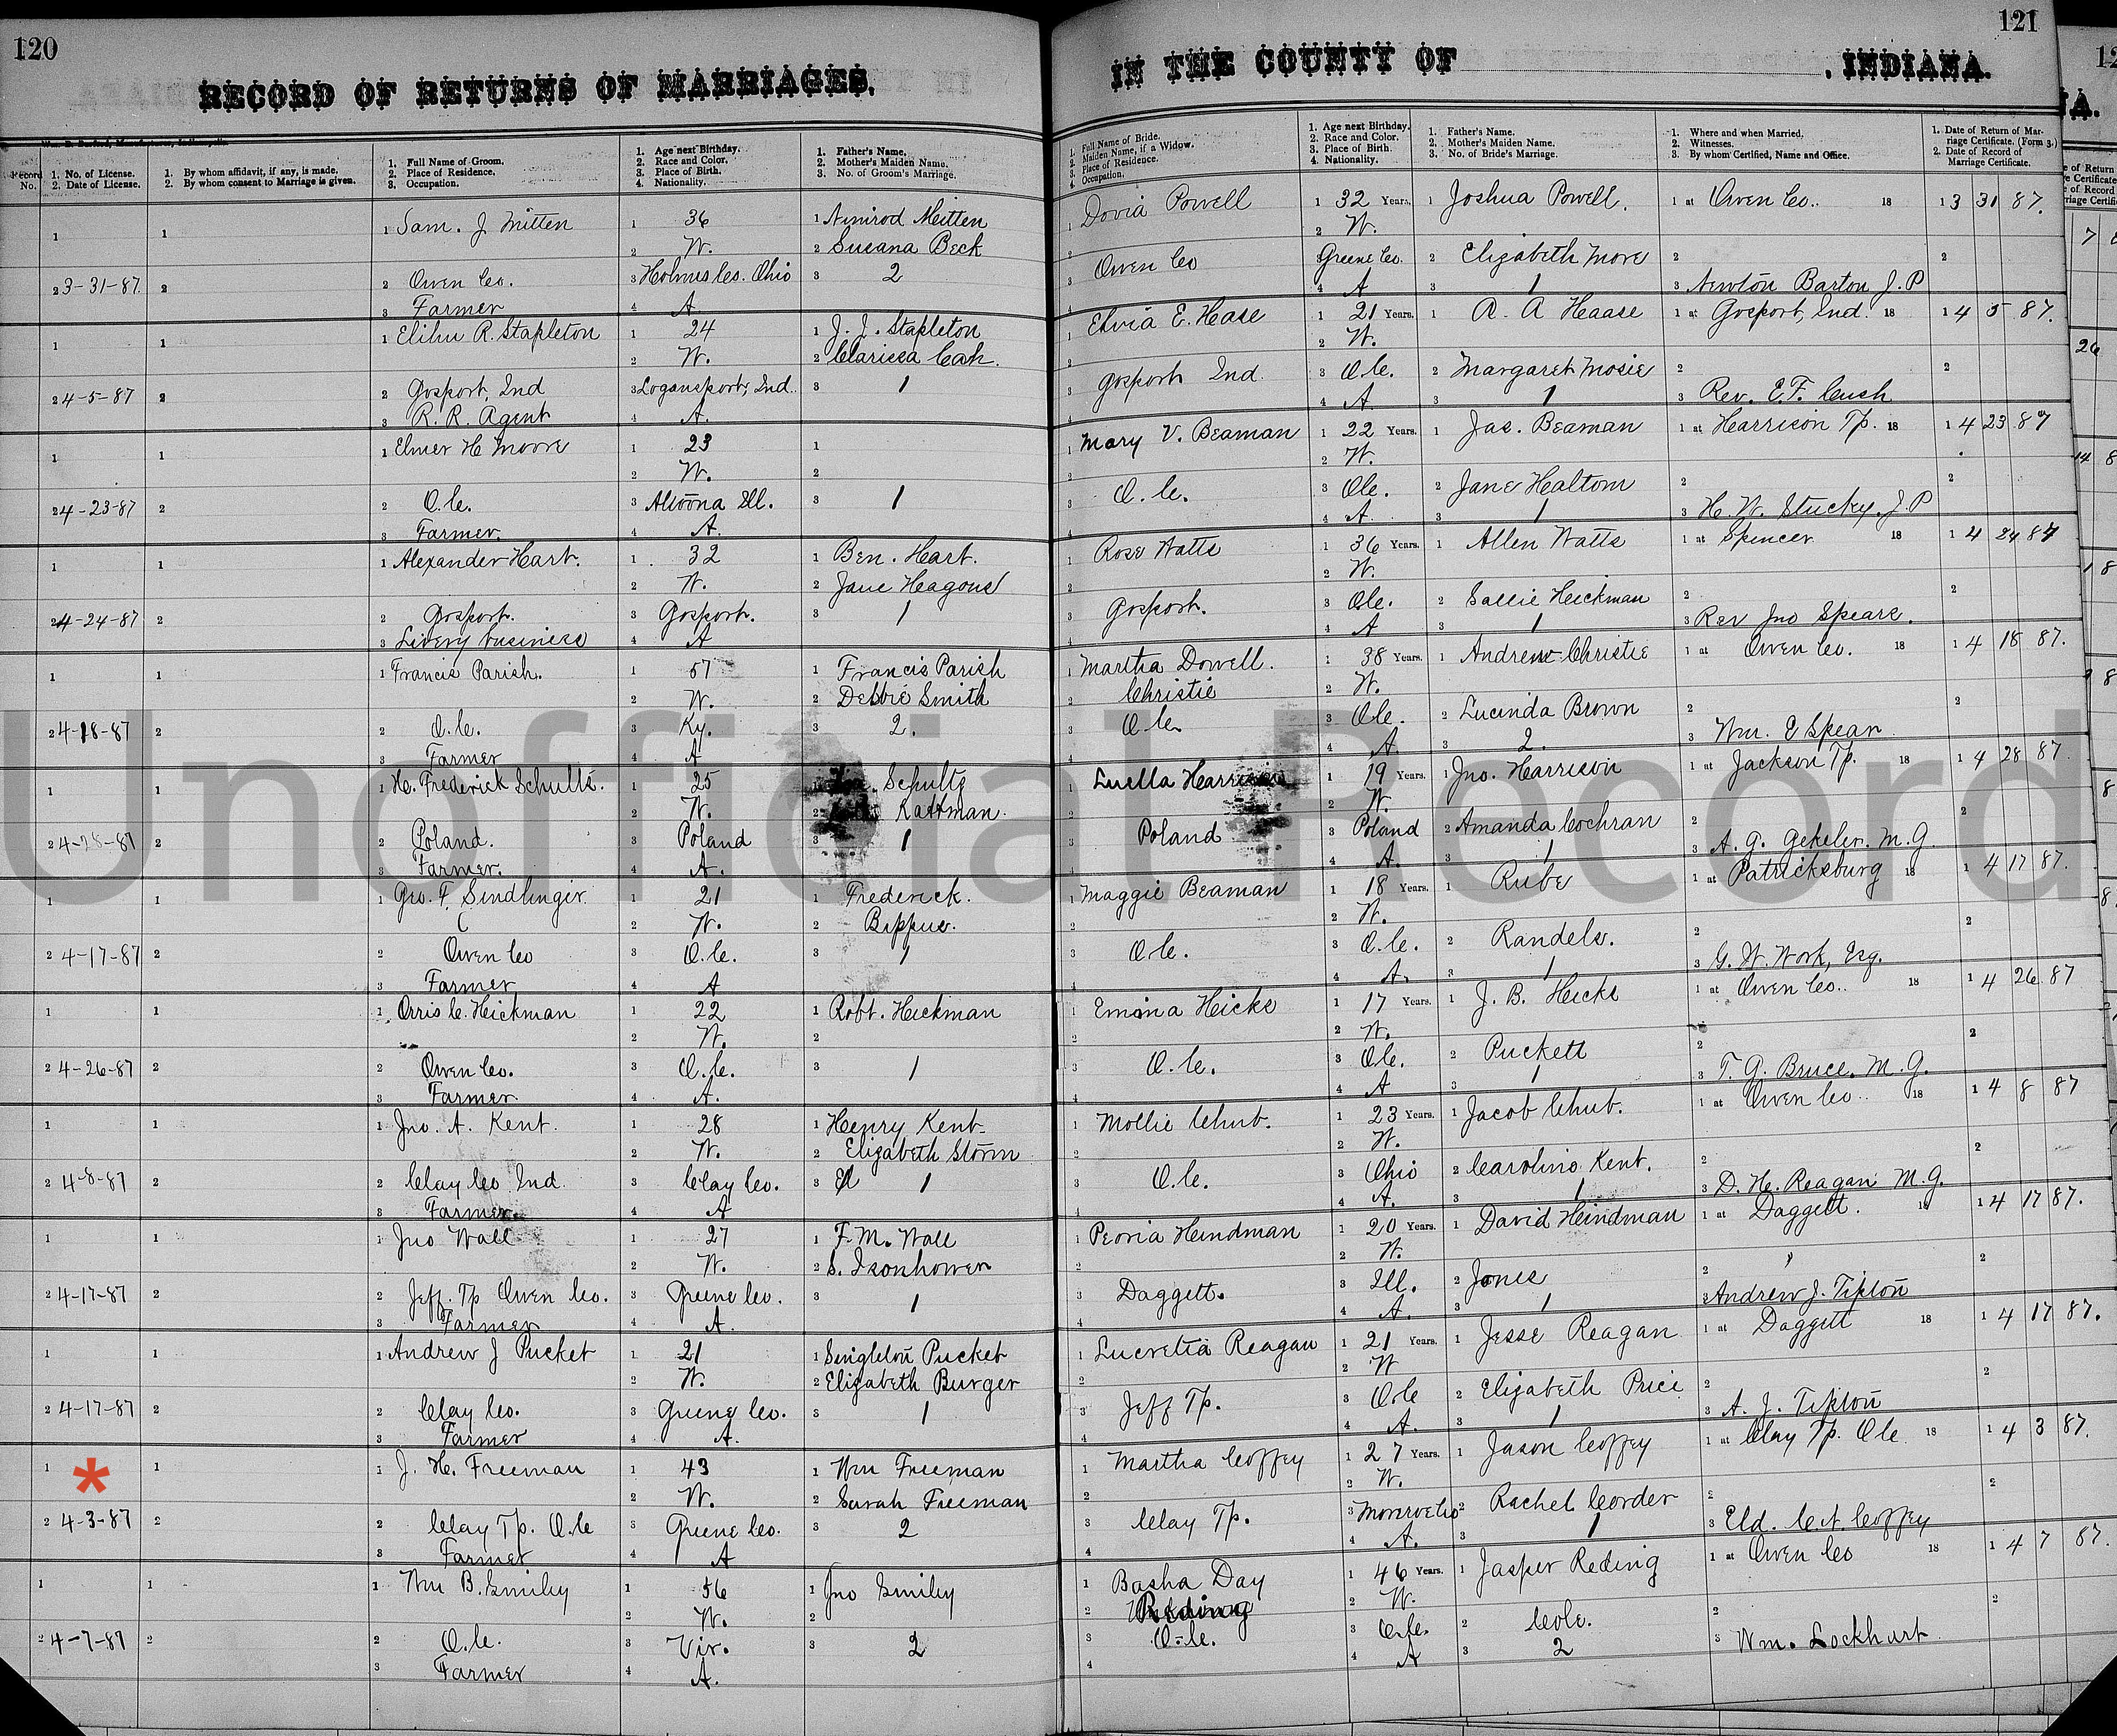 120
RECORD OF RETURNS OF MARRIAGES.
Record No.
1. No. of License.
2. Date of License.
1. By whom affidavit, if any, is made.
2. By whom consent to Marriage is given.
1. Full Name of Groom.
2. Place of Residence.
3. Occupation.
1. Age next Birthday.
2. Race and Color.
3. Place of Birth.
4. Nationality.
1. Father's Name.
2. Mother's Maiden Name.
3. No. of Groom's Marriage.
1 1 1 Sam. J Mitten 1 36 1 Nimrod Mitten
2 W. 2 Susana Beck
2 3-31-87 2 2 Owen Co. 3 Holmes Co. Ohio 3 2
3 Farmer 4 A
1 1 1 Elihu R. Stapleton 1 24 1 J. J. Stapleton
2 W. 2 Clarissa Cash
2 4-5-87 2 2 Gosport, Ind 3 Logansport, Ind. 3 1
3 R. R. Agent 4 A.
1 1 1 Elmer H Moore 1 23 1
2 W. 2
2 4-23-87 2 2 O.C. 3 Altoona Ill. 3 1
3 Farmer. 4 A.
1 1 1 Alexander Hart. 1 32 1 Ben. Hart.
2 W. 2 Jane
2 4-24-87 2 2 Gosport. 3 Gosport. 3 1
3 Livery business 4 A
1 1 1 Francis Parish. 1 57 1 Francis Parish
2 W. 2 Debbie Smith
2 4-18-87 2 2 O.C. 3 Ky. 3 2.
3 Farmer 4 A
1 1 1 H. Frederick Schultz. 1 25 1 Schultz
2 W. 2 Kattman.
2 4-28-87 2 2 Poland. 3 Poland 3 1
3 Farmer. 4 A.
1 1 1 Geo. F. Sindlinger 1 21 1 Frederick.
2 W. 2 Bippus.
2 4-17-87 2 2 Owen Co 3 O.C. 3 1
3 Farmer 4 A
1 1 1 Orris C. Hickman 1 22 1 Robt. Hickman
2 W. 2
2 4-26-87 2 2 Owen Co. 3 O.C. 3 1
3 Farmer. 4 A.
1 1 1 Jno. A. Kent. 1 28 1 Henry Kent
2 W. 2 Elizabeth Storm
2 4-8-87 2 2 Clay Co. Ind. 3 Clay Co. 3 1
3 Farmer. 4 A
1 1 1 Jno Wall 1 27 1 F. M. Wall
2 W. 2 S. Isonhower
2 4-17-87 2 2 Jeff. Tp Owen Co. 3 Greene Co. 3 1
3 Farmer 4 A.
1 1 1 Andrew J Pucket 1 21 1 Singleton Pucket
2 W. 2 Elizabeth Burger
2 4-17-87 2 2 Clay Co. 3 Greene Co. 3 1
3 Farmer 4 A.
1 * 1 1 J. H. Freeman 1 43 1 Wm Freeman
2 W. 2 Sarah Freeman
2 4-3-87 2 2 Clay Tp. O.C 3 Greene Co. 3 2
3 Farmer 4 A
1 1 1 Wm B. Smiley 1 56 1 Jno Smiley
2 W. 2
2 4-7-87 2 2 O.C. 3 Vir. 3 2
3 Farmer 4 A.
121
IN THE COUNTY OF , INDIANA.
1. Full Name of Bride.
2. Maiden Name, if a Widow.
3. Place of Residence.
4. Occupation.
1. Age next Birthday.
2. Race and Color.
3. Place of Birth.
4. Nationality.
1. Father's Name.
2. Mother's Maiden Name.
3. No. of Bride's Marriage.
1. Where and when Married.
2. Witnesses.
3. By whom Certified, Name and Office.
1. Date of Return of Marriage Certificate. (Form 3.)
2. Date of Record of Marriage Certificate.
1 Dovia Powell 1 32 Years. 1 Joshua Powell. 1 at Owen Co. 18 1 3 31 87.
2 2 W.
3 Owen Co Greene Co. 2 Elizabeth More 2 2
4 4 A 3 1 3 Newton Barton J. P
1 Elvia E. Hase 1 21 Years. 1 R. A Haase 1 at Gosport, Ind. 18 1 4 5 87.
2 2 W.
3 Gosport Ind. 3 O.C. 2 Margaret Mosie 2 2
4 4 A 3 1 3 Rev. E. F. Cush
1 Mary V. Beaman 1 22 Years. 1 Jas. Beaman 1 at Harrison Tp. 18 1 4 23 87
2 2 W.
3 O.C. 3 O.C. 2 Jane Haltom 2 2
4 4 A. 3 1 3 H. W. Stucky. J. P
1 Rose Watts 1 36 Years. 1 Allen Watts 1 at Spencer 18 1 4 24 87
2 2 W.
3 Gosport. 3 O.C. 2 Sallie Hickman 2 2
4 4 A 3 1 3 Rev Jno Spears.
1 Martha Dowell. 1 38 Years. 1 Andrew Christie 1 at Owen Co. 18 1 4 18 87.
2 Christie 2 W.
3 O.C. 3 O.C. 2 Lucinda Brown 2 2
4 A. 3 2. 3 Wm. E Spear
1 Luella Harrison 1 19 Years. 1 Jno. Harrison 1 at Jackson Tp. 18 1 4 28 87.
2 W.
3 Poland 3 Poland 2 Amanda Cochran 2 2
4 A. 3 1 3 A. G. Gekeler. M. G.
1 Maggie Beaman 1 18 Years. 1 Rube 1 at Patricksburg 18 1 4 17 87.
2 2 W.
3 O.C. 3 O.C. 2 Randels. 2 2
4 4 A. 3 1 3 G. W. Work, Esq.
1 Emma Hicks 1 17 Years. 1 J. B. Hicks 1 at Owen Co. 18 1 4 26 87
2 2 W.
3 O.C. 3 O.C. 2 Puckett 2 2
4 4 A 3 1 3 T. G. Bruce. M. G.
1 Mollie Chub. 1 23 Years. 1 Jacob Chub. 1 at Owen Co. 18 1 4 8 87
2 2 W.
3 O.C. 3 Ohio 2 Caroline Kent. 2 2
4 4 A. 3 1 3 D. H. Reagan M. G.
1 Peoria Hindman 1 20 Years. 1 David Hindman 1 at Daggett. 18 1 4 17 87.
2 2 W.
3 Daggett. 3 Ill. 2 Jones 2 2
4 4 A. 3 1 3 Andrew J. Tipton
1 Lucretia Reagan 1 21 Years. 1 Jesse Reagan 1 at Daggett 18 1 4 17 87.
2 2 W
3 Jeff Tp. 3 O.C 2 Elizabeth Price 2 2
4 4 A. 3 1 3 A. J. Tipton
1 Martha Coffey 1 27 Years. 1 Jason Coffey 1 at Clay Tp. O.C 18 1 4 3 87.
2 2 W.
3 Clay Tp. 3 Monroe Co 2 Rachel Corder 2 2
4 4 A. 3 1 3 Eld. C. N. Coffey
1 Basha Day 1 46 Years. 1 Jasper Reding 1 at Owen Co 18 1 4 7 87.
2 Reding 2 W.
3 O.C. 3 O.C. 2 Cole. 2 2
4 4 A 3 2 3 Wm. Lockhart
Unofficial Record